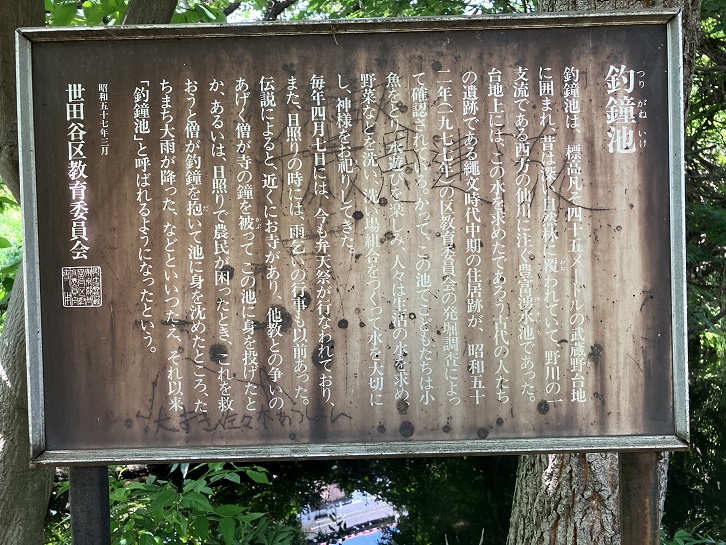 釣鐘池
つり がね いけ
釣鐘池は、標高凡そ四十五メートルの武蔵野台地
に囲まれ、昔は深く自然林に覆われていて、野川の一
支流である西方の仙川に注ぐ豊富な湧水池であった。
台地上には、この水を求めたであろう古代の人たち
の遺跡である縄文時代中期の住居跡が、昭和五十
二年(一九七七年)の区教育委員会の発掘調査によっ
て確認されている。かつて、この池でこどもたちは小
魚をとり水遊びを楽しみ、人々は生活の水を求め、
野菜などを洗い、洗い場組合をつくって水を大切に
し、神様をお祀りしてきた。
毎年四月七日には、今も弁天祭が行なわれており、
また、日照りの時には、雨乞いの行事も以前あった。
伝説によると、近くにお寺があり、他教との争いの
あげく僧が寺の鐘を被って、この池に身を投げたと
か、あるいは、日照りで農民が困ったとき、これを救
おうと僧が釣鐘を抱いて池に身を沈めたところ、た
ちまち大雨が降った、などといいつたえ、それ以来
「釣鐘池」と呼ばれるようになったという。
昭和五十七年三月
世田谷区教育委員会